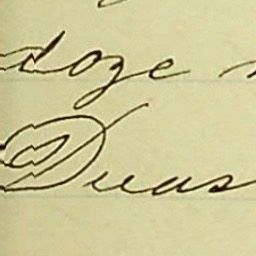 doze
Duas